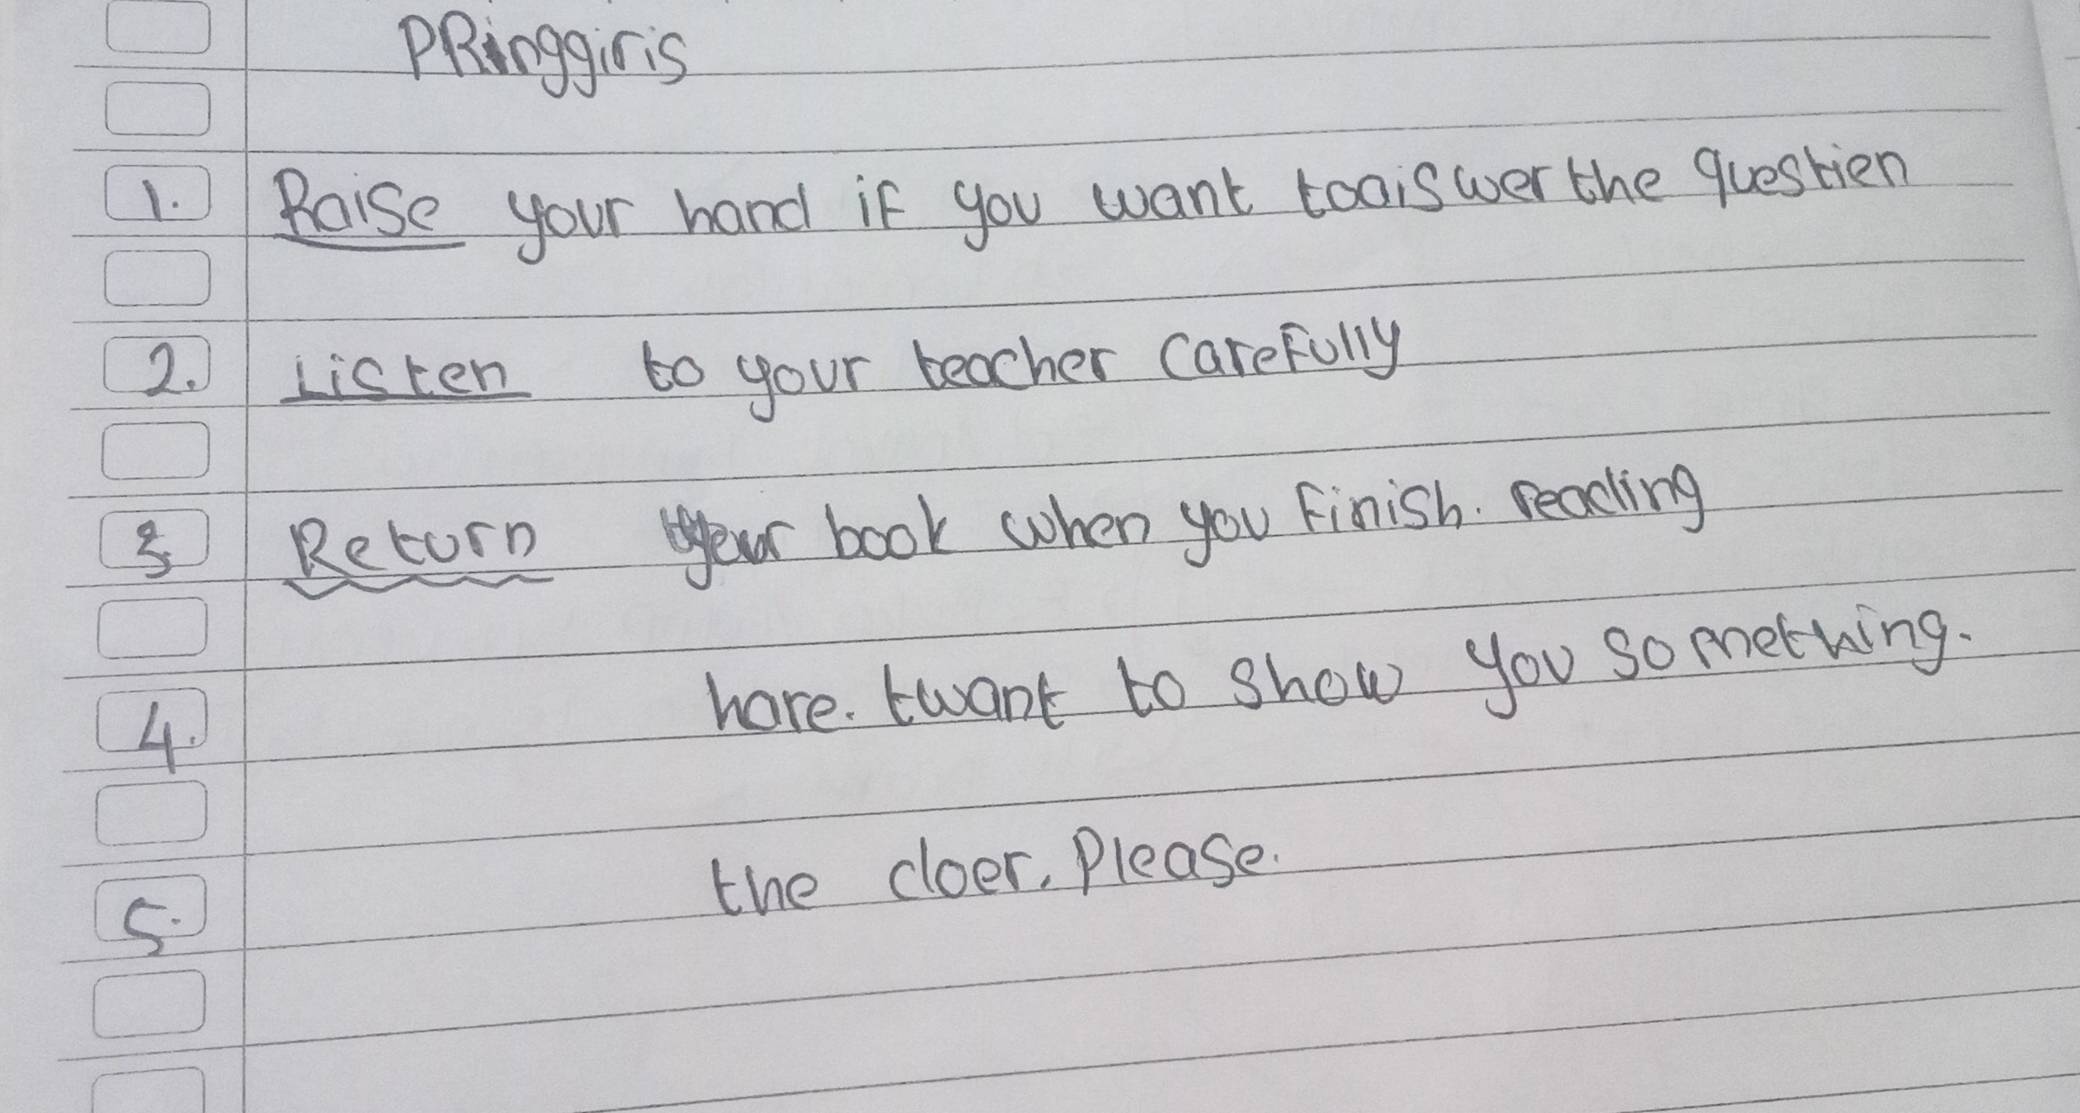 PRinggiris
1. Raise your hand if you want toaiswer the questien
2. Listen to your teacher carefully
3. Return your book when you finish. reading
4. hare. twant to show you something.
5. the doer. Please.